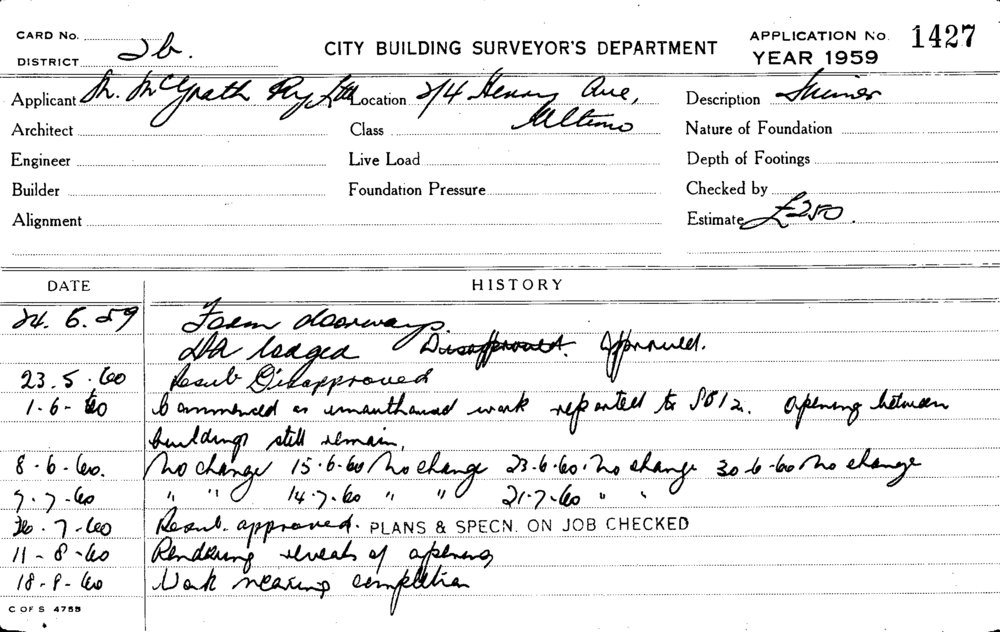 CARD No.
CITY BUILDING SURVEYOR'S DEPARTMENT
APPLICATION No. 1427
DISTRICT 2b.
YEAR 1959
Applicant M. McGrath Pty Ltd Location 2/4 Henry Ave, Description
Architect Class Ultimo Nature of Foundation
Engineer Live Load Depth of Footings
Builder Foundation Pressure Checked by
Alignment Estimate £250.
DATE HISTORY
24. 6. 59 Form doorways.
DA lodged Disapproved. Approved.
23. 5. 60 Resub Disapproved
1-6-60 Commenced as unauthorised work reported to Opening between
buildings still remain.
8-6-60. No change 15-6-60 No change 23-6-60. No change 30-6-60 No change
7-7-60 " " 14-7-60 " " 21-7-60 " "
26-7-60 Resub. approved. PLANS & SPECN. ON JOB CHECKED
11-8-60 Rendering reveals of opening
18-8-60 Work nearing completion
C OF S 4755